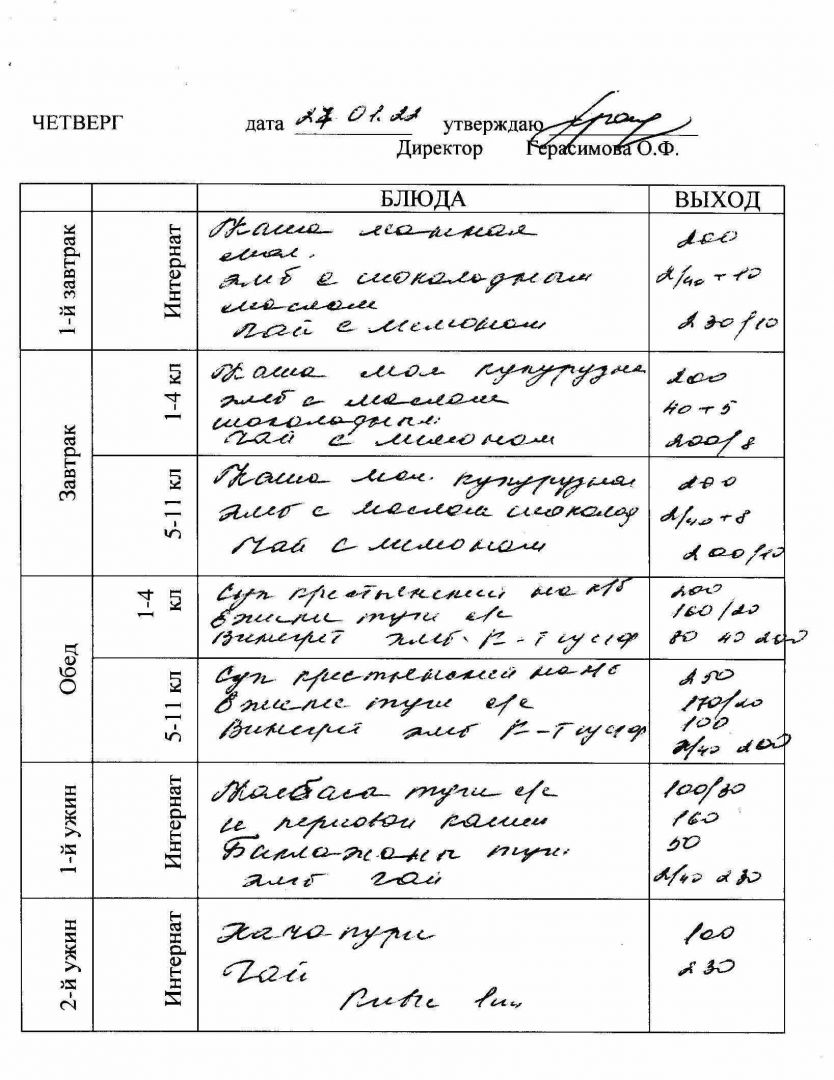 ЧЕТВЕРГ дата 27 01.22 утверждаю
Директор Герасимова О.Ф.
БЛЮДА ВЫХОД
1-й завтрак Интернат
Каша манная 200
мол.
хлб с шоколадным 2/40 + 10
маслом
Чай с лимоном 230/10
Завтрак
1-4 кл
Каша мол кукурузна 200
хлб с маслом 40 + 5
шоколадным
Чай с лимоном 200/8
5-11 кл
Каша мол. кукурузная 200
хлб с маслом шоколад 2/40 + 8
Чай с лимоном 200/10
Обед
1-4 кл
Суп крестьянский на к/б 200
Ежики туш с/с 160/20
Винегрет хлб. К-т сух ф 80 40 200
5-11 кл
Суп крестьянский на 250
Ежики туш с/с 170/20
Винегрет хлб К-т сух ф 100
2/40 200
1-й ужин Интернат
Колбаса туш с/с 100/30
и перловой кашей 160
Баклажаны туш. 50
хлб чай 2/40 230
2-й ужин Интернат
Хачапури 100
Чай 230